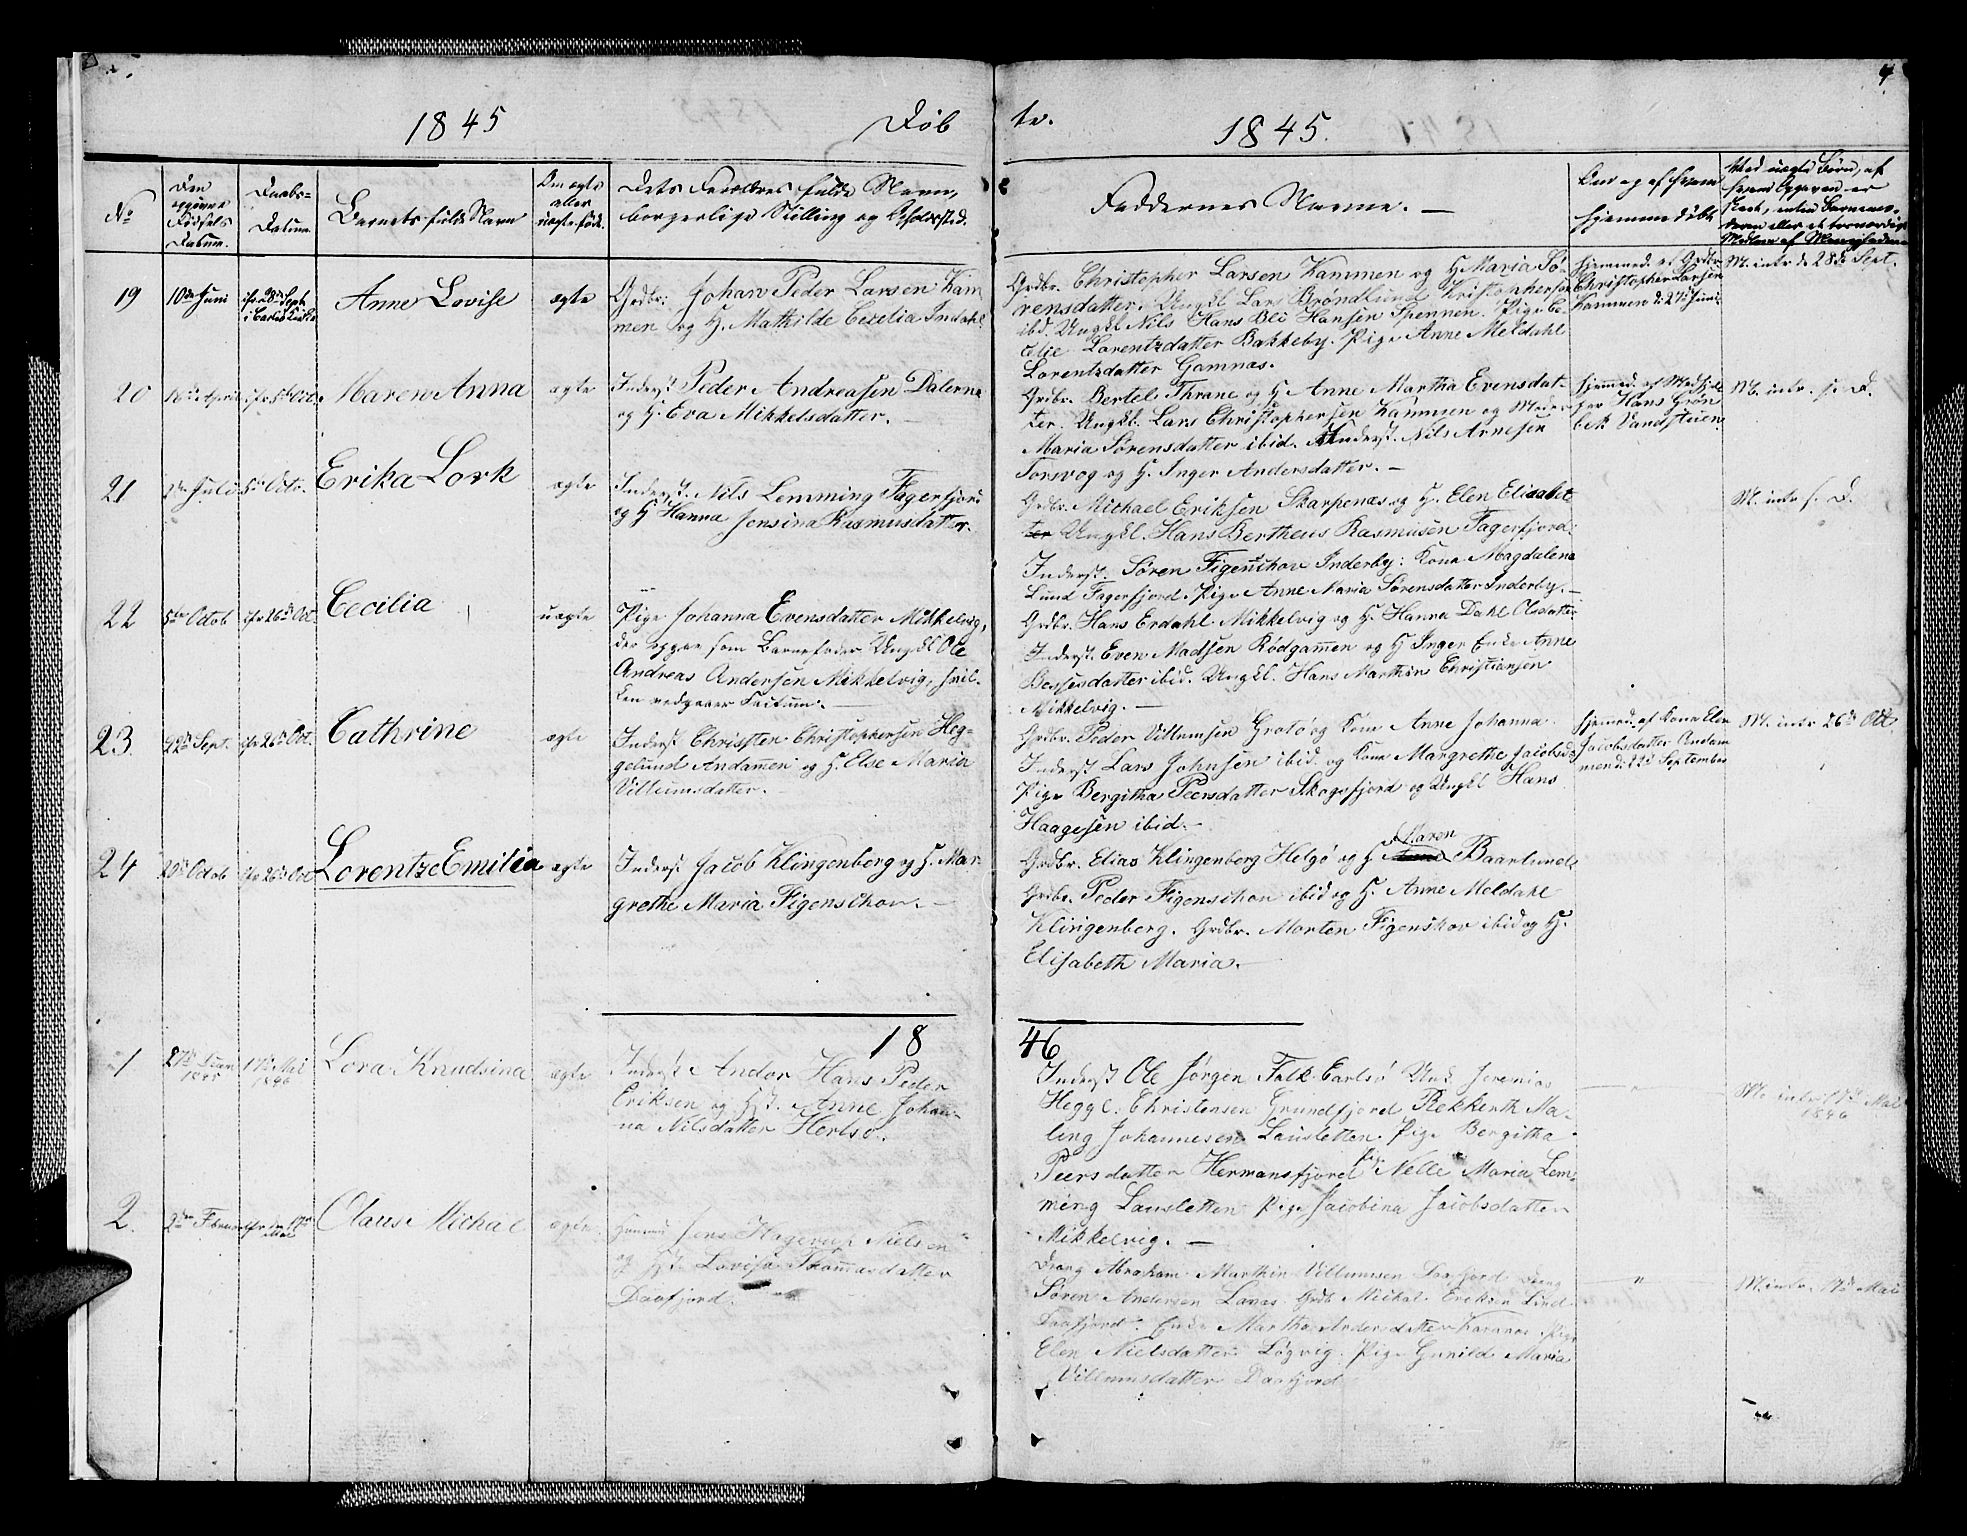 4
1845 Døb
te. 1845.
No
Den opgivne Fødsels Datum.
Daabs-Datum
Barnets fulde Navn
Om ægte eller uægte født.
Dets Forældres fulde Navn,
borgerlige Stilling og Opholdssted.
Faddernes Navne. —
Om og af hvem
hjemmedøbt
19 10de Juni Anne Lovise ægte
Grdbr: Johan Peder Larsen Kam-
men og H. Mathilde Cecelia Indahl
Grdbr. Christopher Larsen Kammen og H Maria Sø-
rensdatter. Ungkl Lars Brøndlund Kristophersen
ibd. Ungkl Nils Hans Blé Hansen Spennen. Pige Ce-
celie Lorentzdatter Bakkeby. Pige Anne Meldahl
Lorentzdatter Gamnæs.
hjemmed. af Grdbr
Christopher Larsen
Kammen d: 27de Juni
M. intr d: 28de Sept.
20 Maren Anna ægte
Inderst Peder Andreasen Dalerna
og H. Eva Mikkelsdatter. —
Grdbr. Bertel Thrane og H Anne Martha Evensdat-
ter. Ungkl. Lars Christophersen Kammen og
Maria Sørensdatter ibid. Inderst. Nils Arnesen
Torsvog og H. Inger Andersdatter. —
Hans Grøn
bek Vandstuen
M. intr. s. D.
21 2de Juli 5te Octr. Erika Lovk ægte
Inderst. Nils Lemming Fagerfjord
og H Hanna Jensina Rasmusdatter.
Grdbr. Michael Eriksen Skarpenæs og H. Elen Elisabet
Ungkl. Hans Bertheus Rasmusen Fagerfjord.
Inderst. Søren Figenschou Inderby: Kone Magdalena
Lund Fagerfjord. Pige Anne Maria Sørensdatter Inderby. —
M. intr s. D.
22 5te Octob Cecilia uægte
Pige Johanna Evensdatter Mikkelvig,
der opgav som Barnefader Ungkl Ole
Andreas Andersen Mikkelvig, hvil-
ken vedgaaer Factum. —
Grdbr. Hans Erdahl Mikkelvig og H Hanna Dahl Olsdatter
Inderst. Even Madsen Rødgammen og H Inger Enke Anne
Bessesdatter ibid. Ungkl. Hans Marthins Christiansen
Mikkelvig. —
23 22de Sept. Cathrine ægte
Inderst Christen Christophersen Heg-
gelund Andamen og H. Else Maria
Villumsdatter. —
Grdbr. Peder Villumsen Grotø og Kone Anne Johanna.
Inderst Lars Johnsen ibid. og Kone Margrethe Jacobsd:
Pige Bergitha Peersdatter Skogsfjord og Ungkl Hans
Haagesen ibid. —
hjemmed. af Kone Elen
Jacobsdatter Andam
men d: 22de September
M. intr 26de Oct.
24 20de Octob Lorentze Emilia ægte
Inderst Jacob Klingenberg og H. Mar-
grethe Maria Figenschou. —
Maren
Grdbr. Elias Klingenberg Helgø og H Baarlunds
Grdbr. Peder Figenschou ibid og H. Anne Meldahl
Klingenberg. Grdbr. Morten Figenskov ibid og H.
Elisabeth Maria. —
18
46
1 17de Mai 1846 Lora Knudsina ægte
Inderst Andor Hans Peder
Eriksen og Hst. Anne Johan-
na Nilsdatter Hertsø.
Inderst Ole Jørgen Falk Carlsø Unk. Jeremias
Heggl. Christensen Grundfjord Rekkerth Ma-
ling Johannesen Lausletten. Pige Bergitha
Peersdatter Hermansfjord Pige Nelle Maria Lem-
ming Lausletten Pige Jacobina Jacobsdatter
Mikkelvig. —
M. intr 17de Mai
1846
2 Claus Michal ægte
Jens Hagerup Nielsen
og Hst. Lovisa Thomasdatter
Daafjord.
Dreng Abraham Marthin Villumsen Daafjord Dreng
Søren Andersen Lanæs Grdb. Michal Eriksen Lind
Daafjord. Enke Martha Andersdatter Pige
Elen Nielsdatter Løgvig. Pige Gunild Maria
Villumsdatter Daafjord
M. intr. 17de Mai